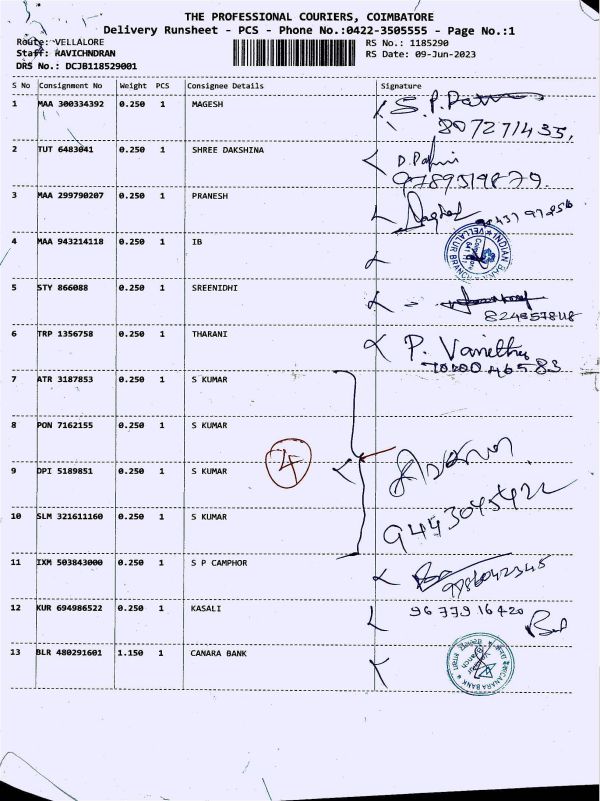 THE PROFESSIONAL COURIERS, COIMBATORE
Delivery Runsheet - PCS - Phone No.:0422-3505555 - Page No.:1
Route: VELLALORE
RS No.: 1185290
Staff: RAVICHNDRAN
RS Date: 09-Jun-2023
DRS No.: DCJB118529001
S No Consignment No Weight PCS Consignee Details Signature
1 MAA 300334392 0.250 1 MAGESH
2 TUT 6483041 0.250 1 SHREE DAKSHINA
9789519879.
3 MAA 299790207 0.250 1 PRANESH
4 MAA 943214118 0.250 1 IB
INDIAN BANK VELLALUR BRANCH
5 STY 866088 0.250 1 SREENIDHI
6 TRP 1356758 0.250 1 THARANI
P.
7 ATR 3187853 0.250 1 S KUMAR
8 PON 7162155 0.250 1 S KUMAR
4
9 DPI 5189851 0.250 1 S KUMAR
10 SLM 321611160 0.250 1 S KUMAR
9443045422
11 IXM 503843000 0.250 1 S P CAMPHOR
9786042345
12 KUR 694986522 0.250 1 KASALI
9677916420
13 BLR 480291601 1.150 1 CANARA BANK
CANARA BANK